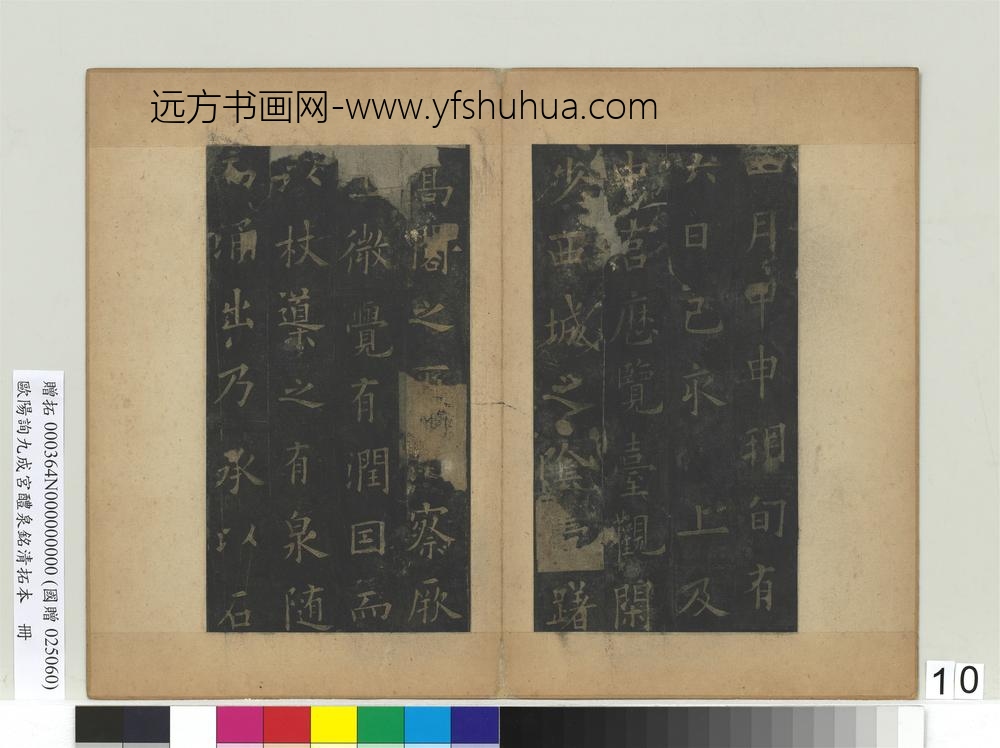 远方书画网-www.yfshuhua.com
四月甲申朔旬有
六日己亥上及
中宮歷覽臺觀閑
步西城之陰躊躇
高閣之下俯察厥
土微覺有潤因
而以杖導之有泉隨
而涌出乃承以石
贈拓 000364N000000000 (國贈 025060)
歐陽詢九成宮醴泉銘清拓本 冊
10